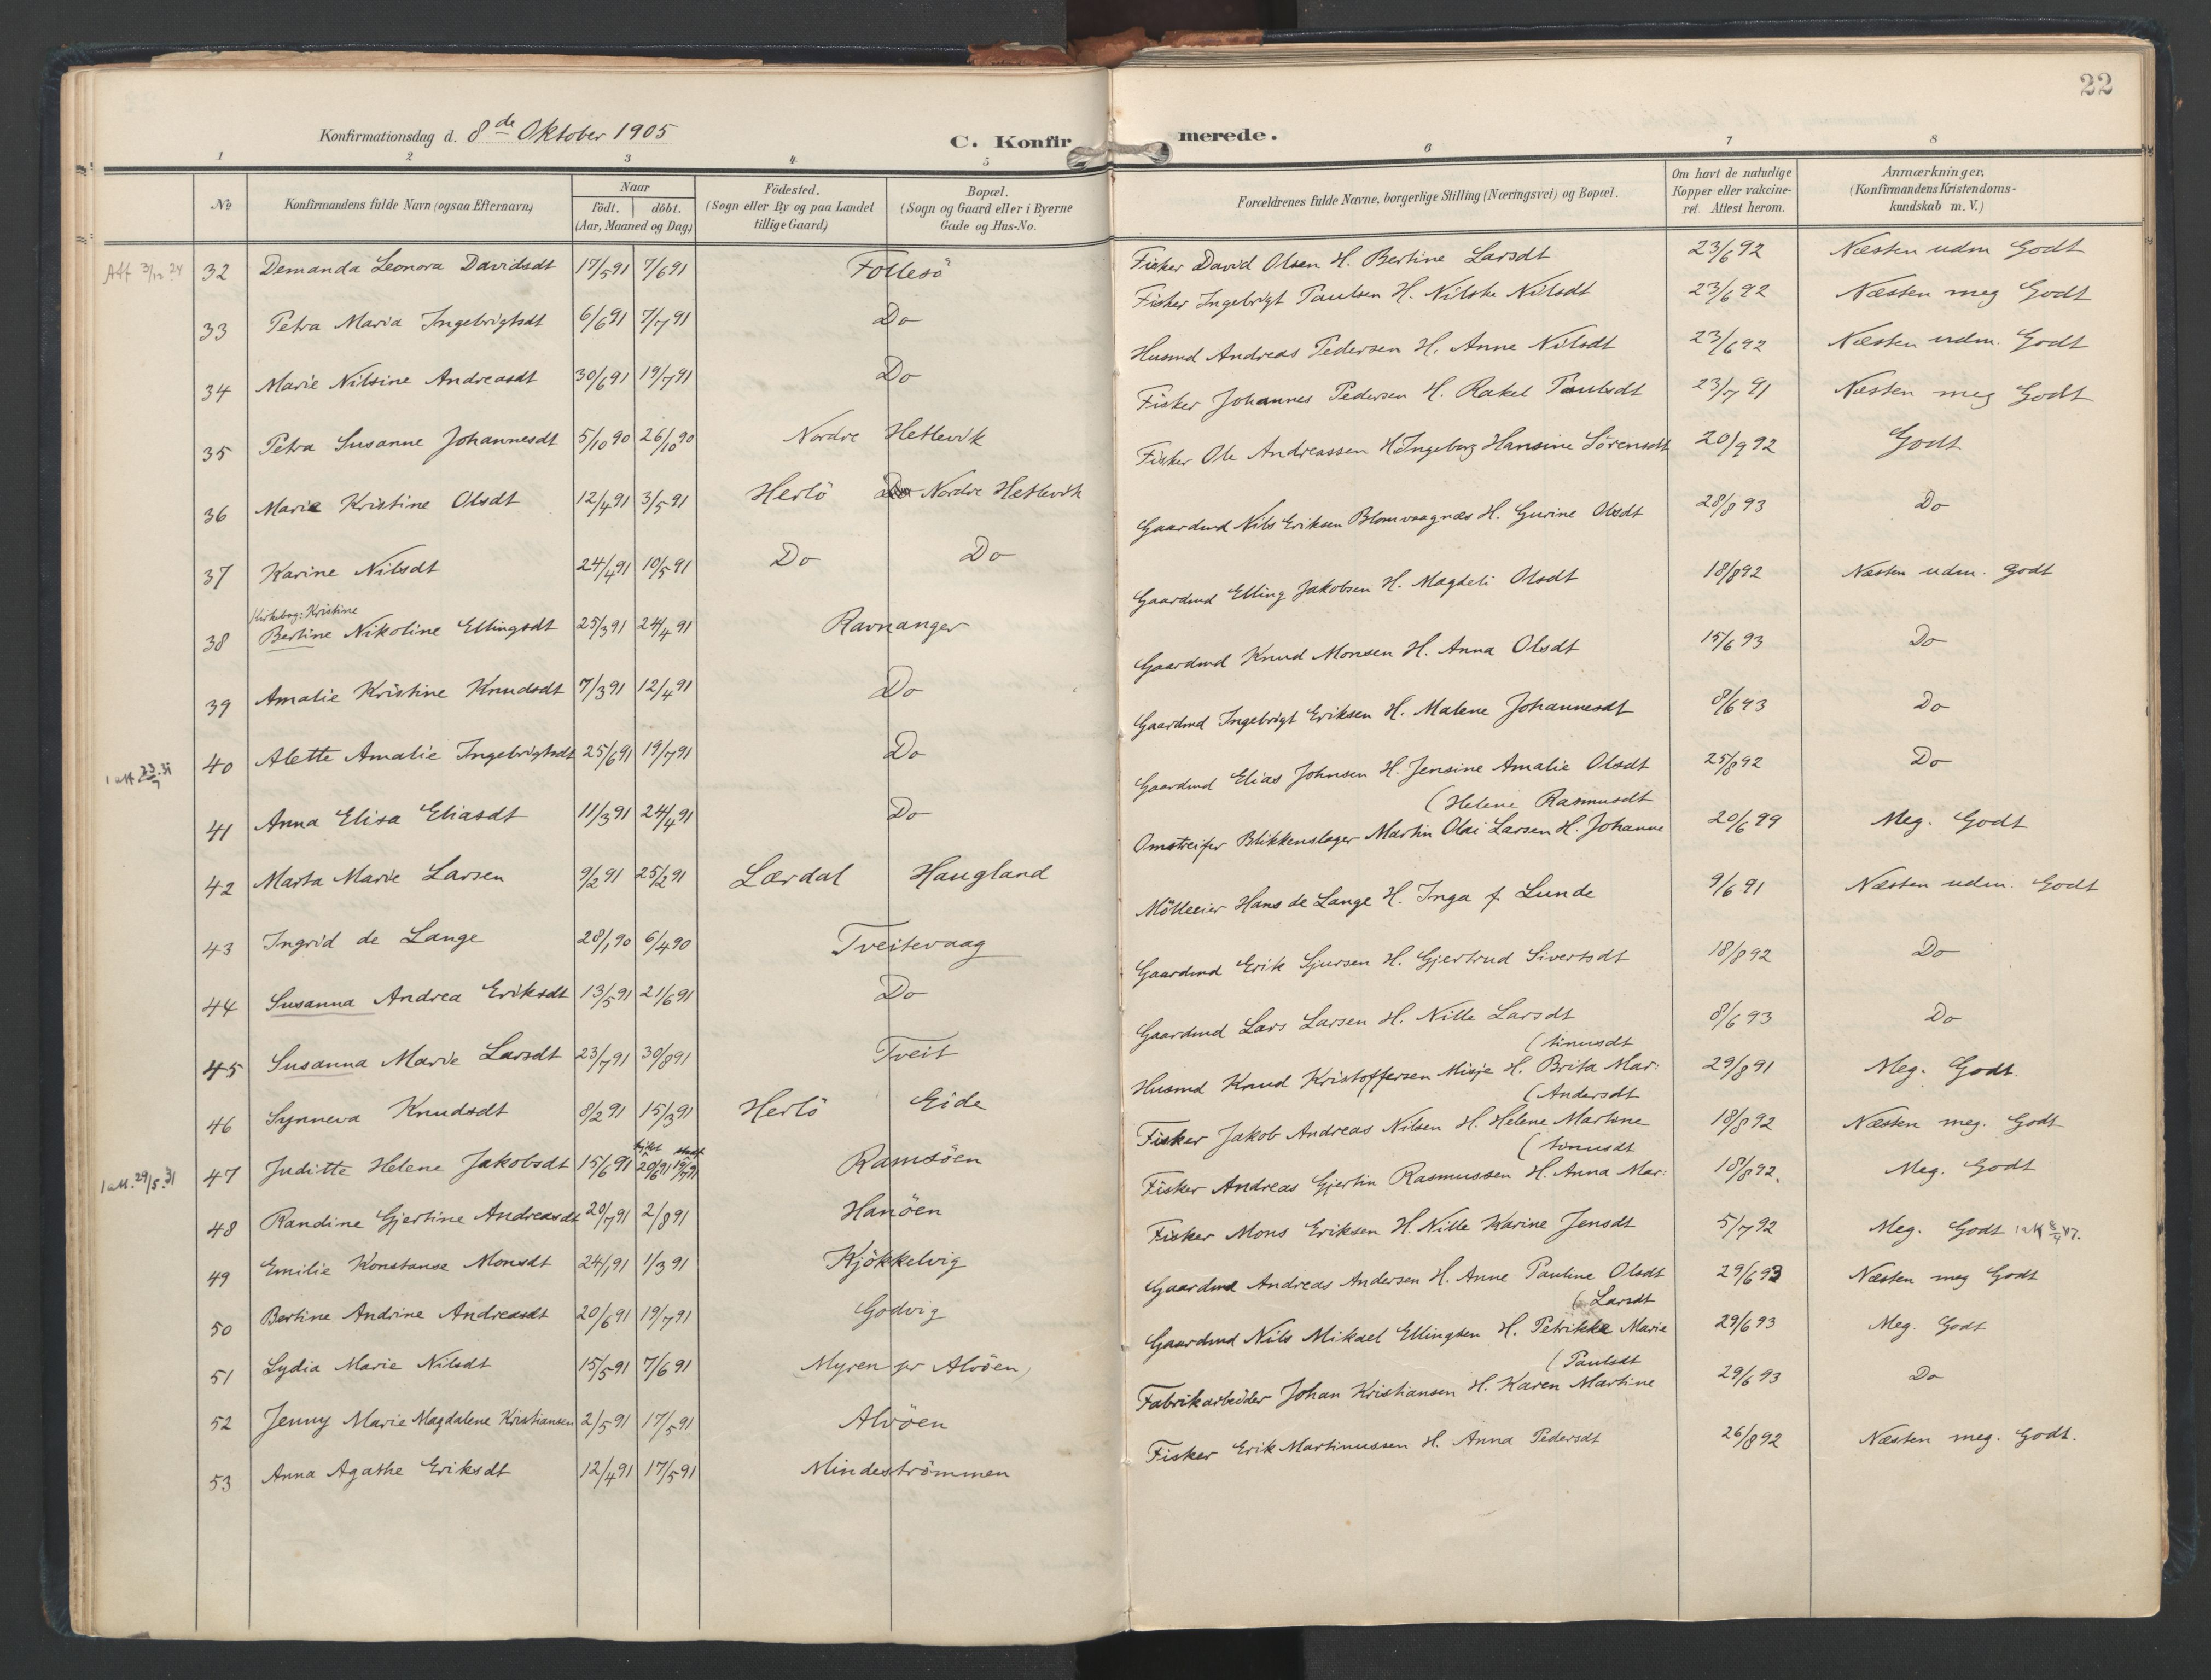 22
Konfirmationsdag d. 8de Oktober 1905
C. Konfirmerede.
1 2 3 4 5 6 7 8
No
Konfirmandens fulde Navn (ogsaa Efternavn)
Naar
födt. döbt.
(Aar, Maaned og Dag)
Födested.
(Sogn eller By og paa Landet
tillige Gaard)
Bopæl.
(Sogn og Gaard eller i Byerne
Gade og Hus-No.
Forældrenes fulde Navne, borgerlige Stilling (Næringsvei) og Bopæl.
Om havt de naturlige
Kopper eller vakcine-
ret. Attest herom.
Anmærkninger,
(Konfirmandens Kristendoms-
kundskab m. V.)
Att 3/12 24 32 Demanda Leonora Davidsdt 17/5 91 7/6 91 Follesö Fisker David Olsen H. Bertine Larsdt 23/6 92 Næsten udm Godt
33 Petra Maria Ingebrigtsdt 6/6 91 7/7 91 Do Fisker Ingebrigt Paulsen H. Nilske Nilsdt 23/6 92 Næsten meg Godt
34 Marie Nilsine Andreasdt 30/6 91 19/7 91 Do Husmd Andreas Pedersen H. Anne Nilsdt 23/6 92 Næsten udm. Godt
35 Petra Susanne Johannesdt 5/10 90 26/10 90 Nordre Hetlevik Fisker Johannes Pedersen H. Rakel Paulsdt 23/7 91 Næsten meg Godt
36 Marie Kristine Olsdt 12/4 91 3/5 91 Herlö Nordre Hetlevik Fisker Ole Andreassen H. Ingeborg Hansine Sörensdt 20/9 92 Godt
37 Karine Nilsdt 24/4 91 10/5 91 Do Do Gaardmd Nils Eriksen Blomvaagnæs H. Gurine Olsdt 28/8 93 Do
Kirkebog: Kristine
38 Bertine Nikoline Ellingsdt 25/3 91 24/4 91 Ravnanger Gaardmd Elling Jakobsen H. Magdeli Olsdt 18/8 92 Næsten udm. Godt
39 Amalie Kristine Knudsdt 7/3 91 12/4 91 Do Gaardmd Knud Monsen H. Anna Olsdt 15/6 93 Do
40 Alette Amalie Ingebrigtsdt 25/6 91 19/7 91 Do Gaardmd Ingebrigt Eriksen H. Malene Johannesdt 8/6 93 Do
41 Anna Elisa Eliasdt 11/3 91 24/4 91 Do Gaardmd Elias Johnsen H. Jensine Amalie Olsdt 25/8 92 Do
(Helene Rasmusdt
42 Marta Marie Larsen 9/2 91 25/2 91 Lærdal Haugland Omstreifer Blikkenslager Martin Olai Larsen H. Johanne 20/6 99 Meg. Godt
43 Ingrid de Lange 28/1 90 6/4 90 Tveitevaag Mölleeier Hans de Lange H. Inga f Lunde 9/6 91 Næsten udm. Godt
44 Susanna Andrea Eriksdt 13/5 91 21/6 91 Do Gaardmd Erik Sjursen H. Gjertrud Sivertsdt 18/8 92 Do
45 Susanna Marie Larsdt 23/7 91 30/8 91 Tveit Gaardmd Lars Larsen H. Nille Larsdt 8/6 93 Do
(tinusdt
46 Synneva Knudsdt 8/2 91 15/3 91 Herlö Eide Husmd Knud Kristoffersen Misje H. Brita Mar: 29/8 91 Meg. Godt.
(Andersdt
1 att. 29/5.31 47 Juditte Helene Jakobsdt 15/6 91 20/6 91 19/7 91 Ramsöen Fisker Jakob Andreas Nilsen H. Helene Martine 18/8 92 Næsten meg. Godt
(tinusdt
48 Randine Gjertine Andreasdt 20/7 91 2/8 91 Hanöen Fisker Andreas Gjertin Rasmussen H. Anna Mar: 18/8 92. Meg. Godt
49 Emilie Konstanse Monsdt 24/1 91 1/3 91 Kjökkelvig Fisker Mons Eriksen H. Nille Karine Jensdt 5/7 92 Meg. Godt
50 Bertine Andrine Andreasdt 20/6 91 19/7 91 Godvig Gaardmd Andreas Andersen H. Anne Pauline Olsdt 29/6 93 Næsten meg Godt
(Larsdt
51 Lydia Marie Nilsdt 15/5 91 7/6 91 Myren pr Alvöen Gaardmd Nils Mikael Ellingsen H. Petrikke Marie 29/6 93 Meg. Godt
(Paulsdt
52 Jenny Marie Magdalene Kristiansen 2/5 91 17/5 91 Alvöen Fabrikarbeider Johan Kristiansen H. Karen Martine 29/6 93 Do
53 Anna Agathe Eriksdt 12/4 91 17/5 91 Mindeströmmen Fisker Erik Martinussen H. Anna Pedersdt 26/8 92 Næsten meg. Godt.